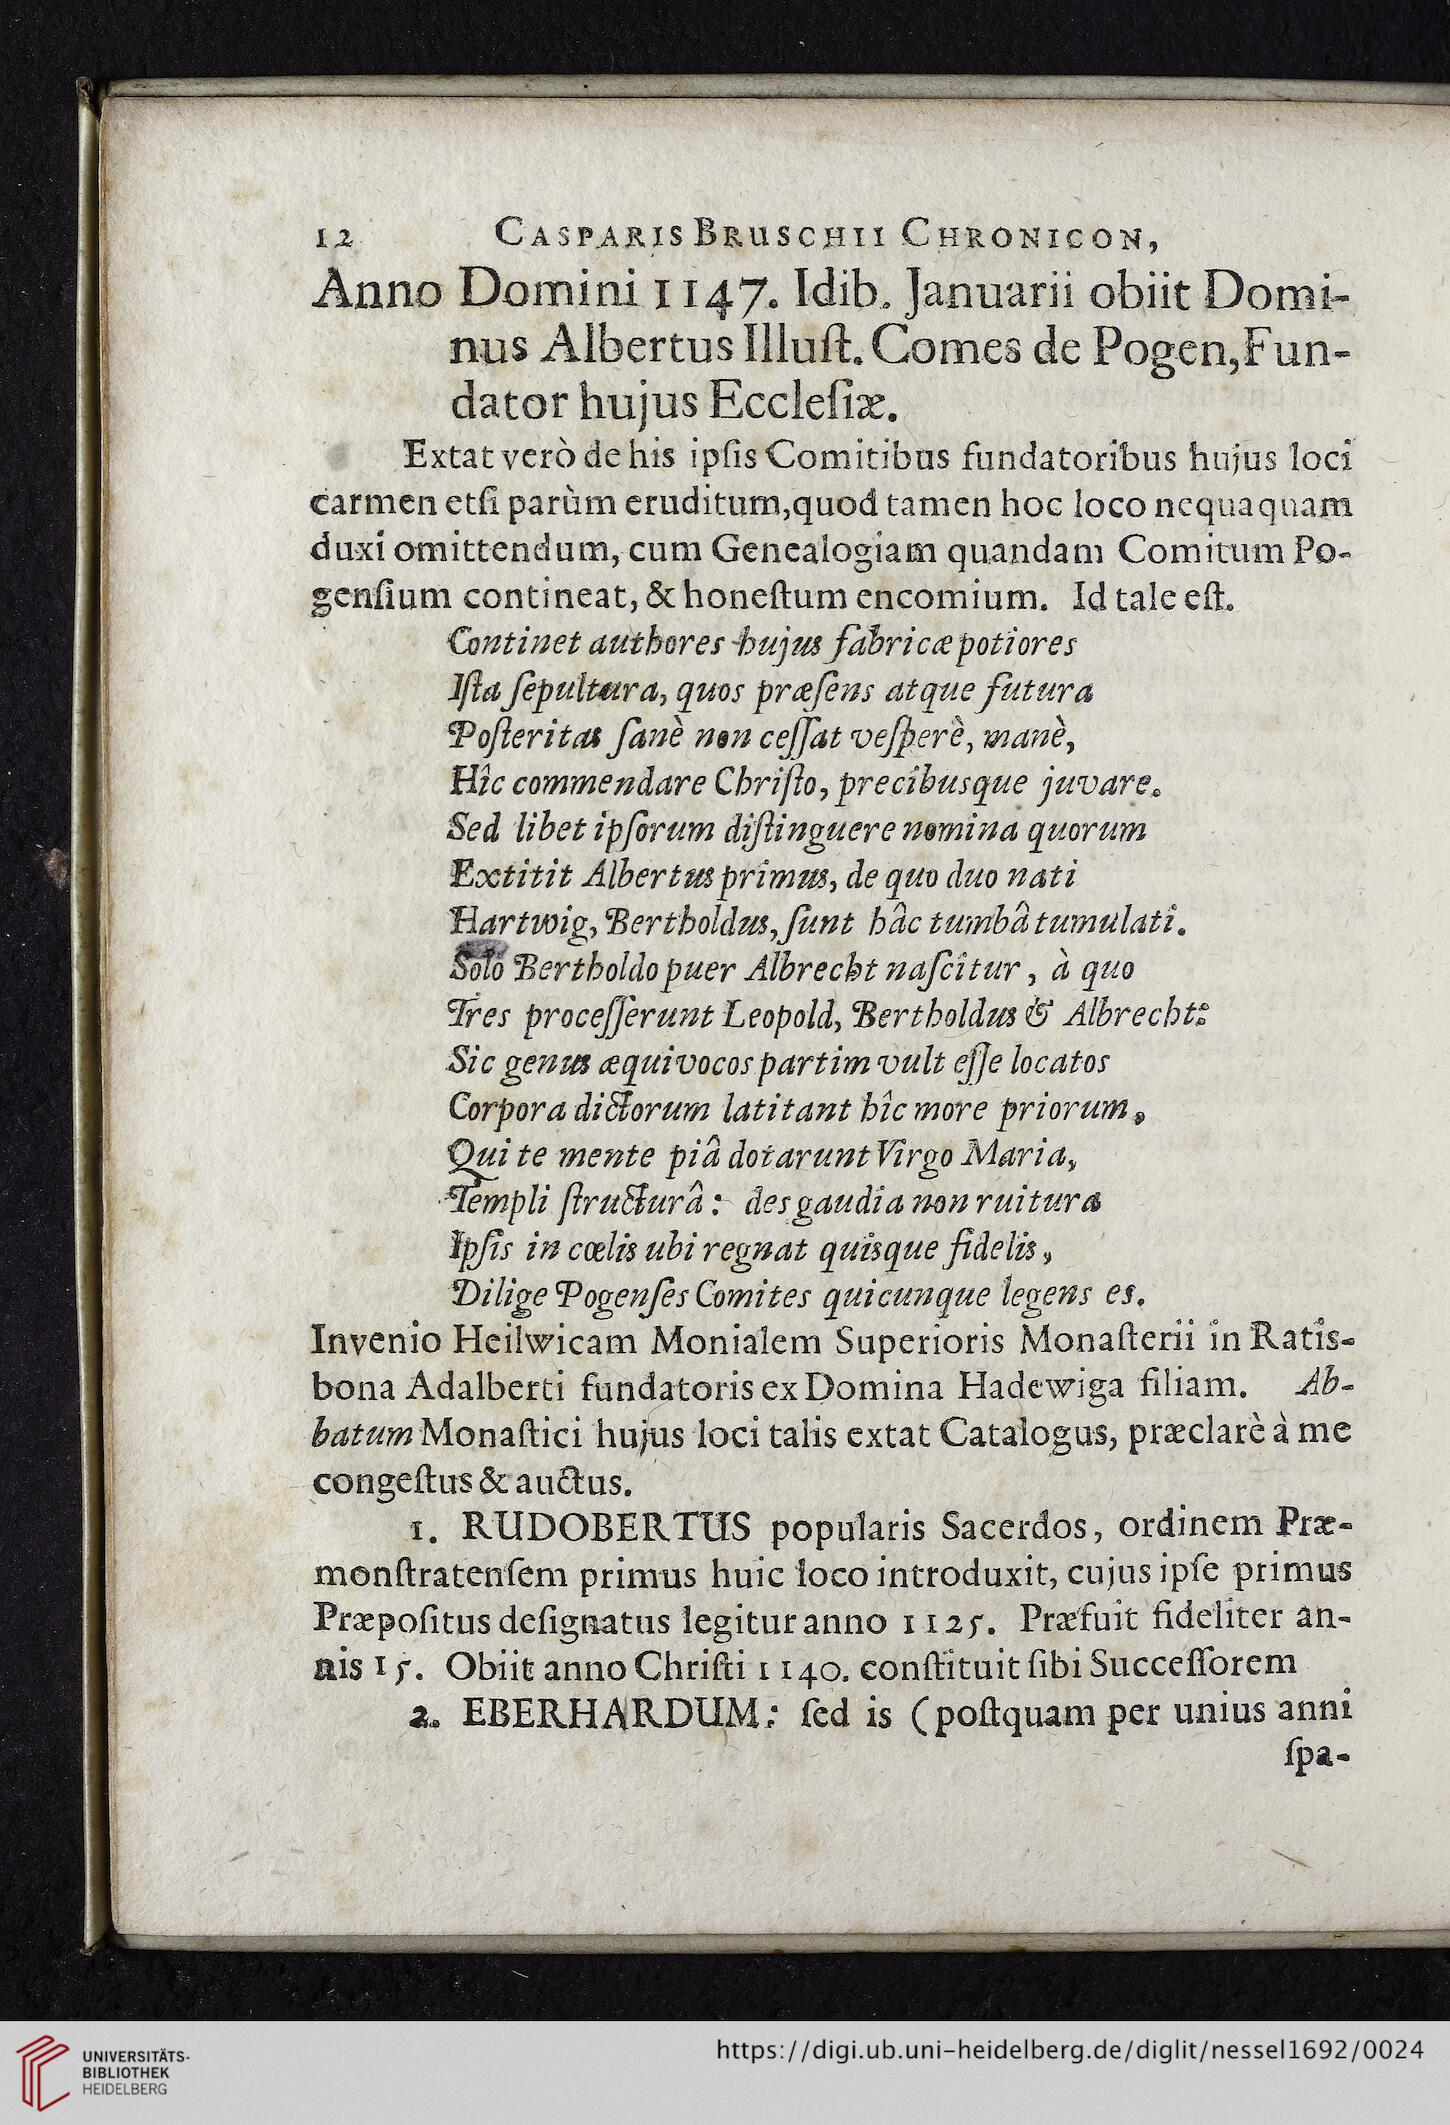 12 CASPARIS BRUSCHII CHRONICON,
Anno Domini 1147. Idib. Januarii obiit Domi-
nus Albertus Illuſt. Comes de Pogen, Fun-
dator hujus Eccleſiæ.
Extat verò de his ipſis Comitibus fundatoribus hujus loci
carmen etſi parùm eruditum, quod tamen hoc loco nequaquam
duxi omittendum, cum Genealogiam quandam Comitum Po-
genſium contineat, & honeſtum encomium. Id tale eſt.
Continet authores hujus fabricæ potiores
Iſta ſepultura, quos præſens atque futura
Poſteritas ſanè non ceſſat veſperè, manè,
Hîc commendare Chriſto, precibusque juvare.
Sed libet ipſorum diſtinguere nomina quorum
Extitit Albertus primus, de quo duo nati
Hartwig, Bertholdus, ſunt hâc tumbâ tumulati.
Solo Bertholdo puer Albrecht naſcitur, à quo
Tres proceſſerunt Leopold, Bertholdus & Albrecht:
Sic genus æquivocos partim vult eſſe locatos
Corpora dictorum latitant hîc more priorum,
Qui te mente piâ dotarunt Virgo Maria,
Templi ſtructurâ: des gaudia non ruitura
Ipſis in cœlis ubi regnat quisque fidelis,
Dilige Pogenſes Comites quicunque legens es.
Invenio Heilwicam Monialem Superioris Monaſterii in Ratis-
bona Adalberti fundatoris ex Domina Hadewiga filiam. Ab-
batum Monaſtici hujus loci talis extat Catalogus, præclarè à me
congeſtus & auctus.
1. RUDOBERTUS popularis Sacerdos, ordinem Præ-
monſtratenſem primus huic loco introduxit, cujus ipſe primus
Præpoſitus deſignatus legitur anno 1125. Præfuit fideliter an-
nis 15. Obiit anno Chriſti 1140. conſtituit ſibi Succeſſorem
2. EBERHARDUM: ſed is (poſtquam per unius anni
ſpa-
UNIVERSITÄTS-
BIBLIOTHEK
HEIDELBERG
https://digi.ub.uni-heidelberg.de/diglit/nessel1692/0024